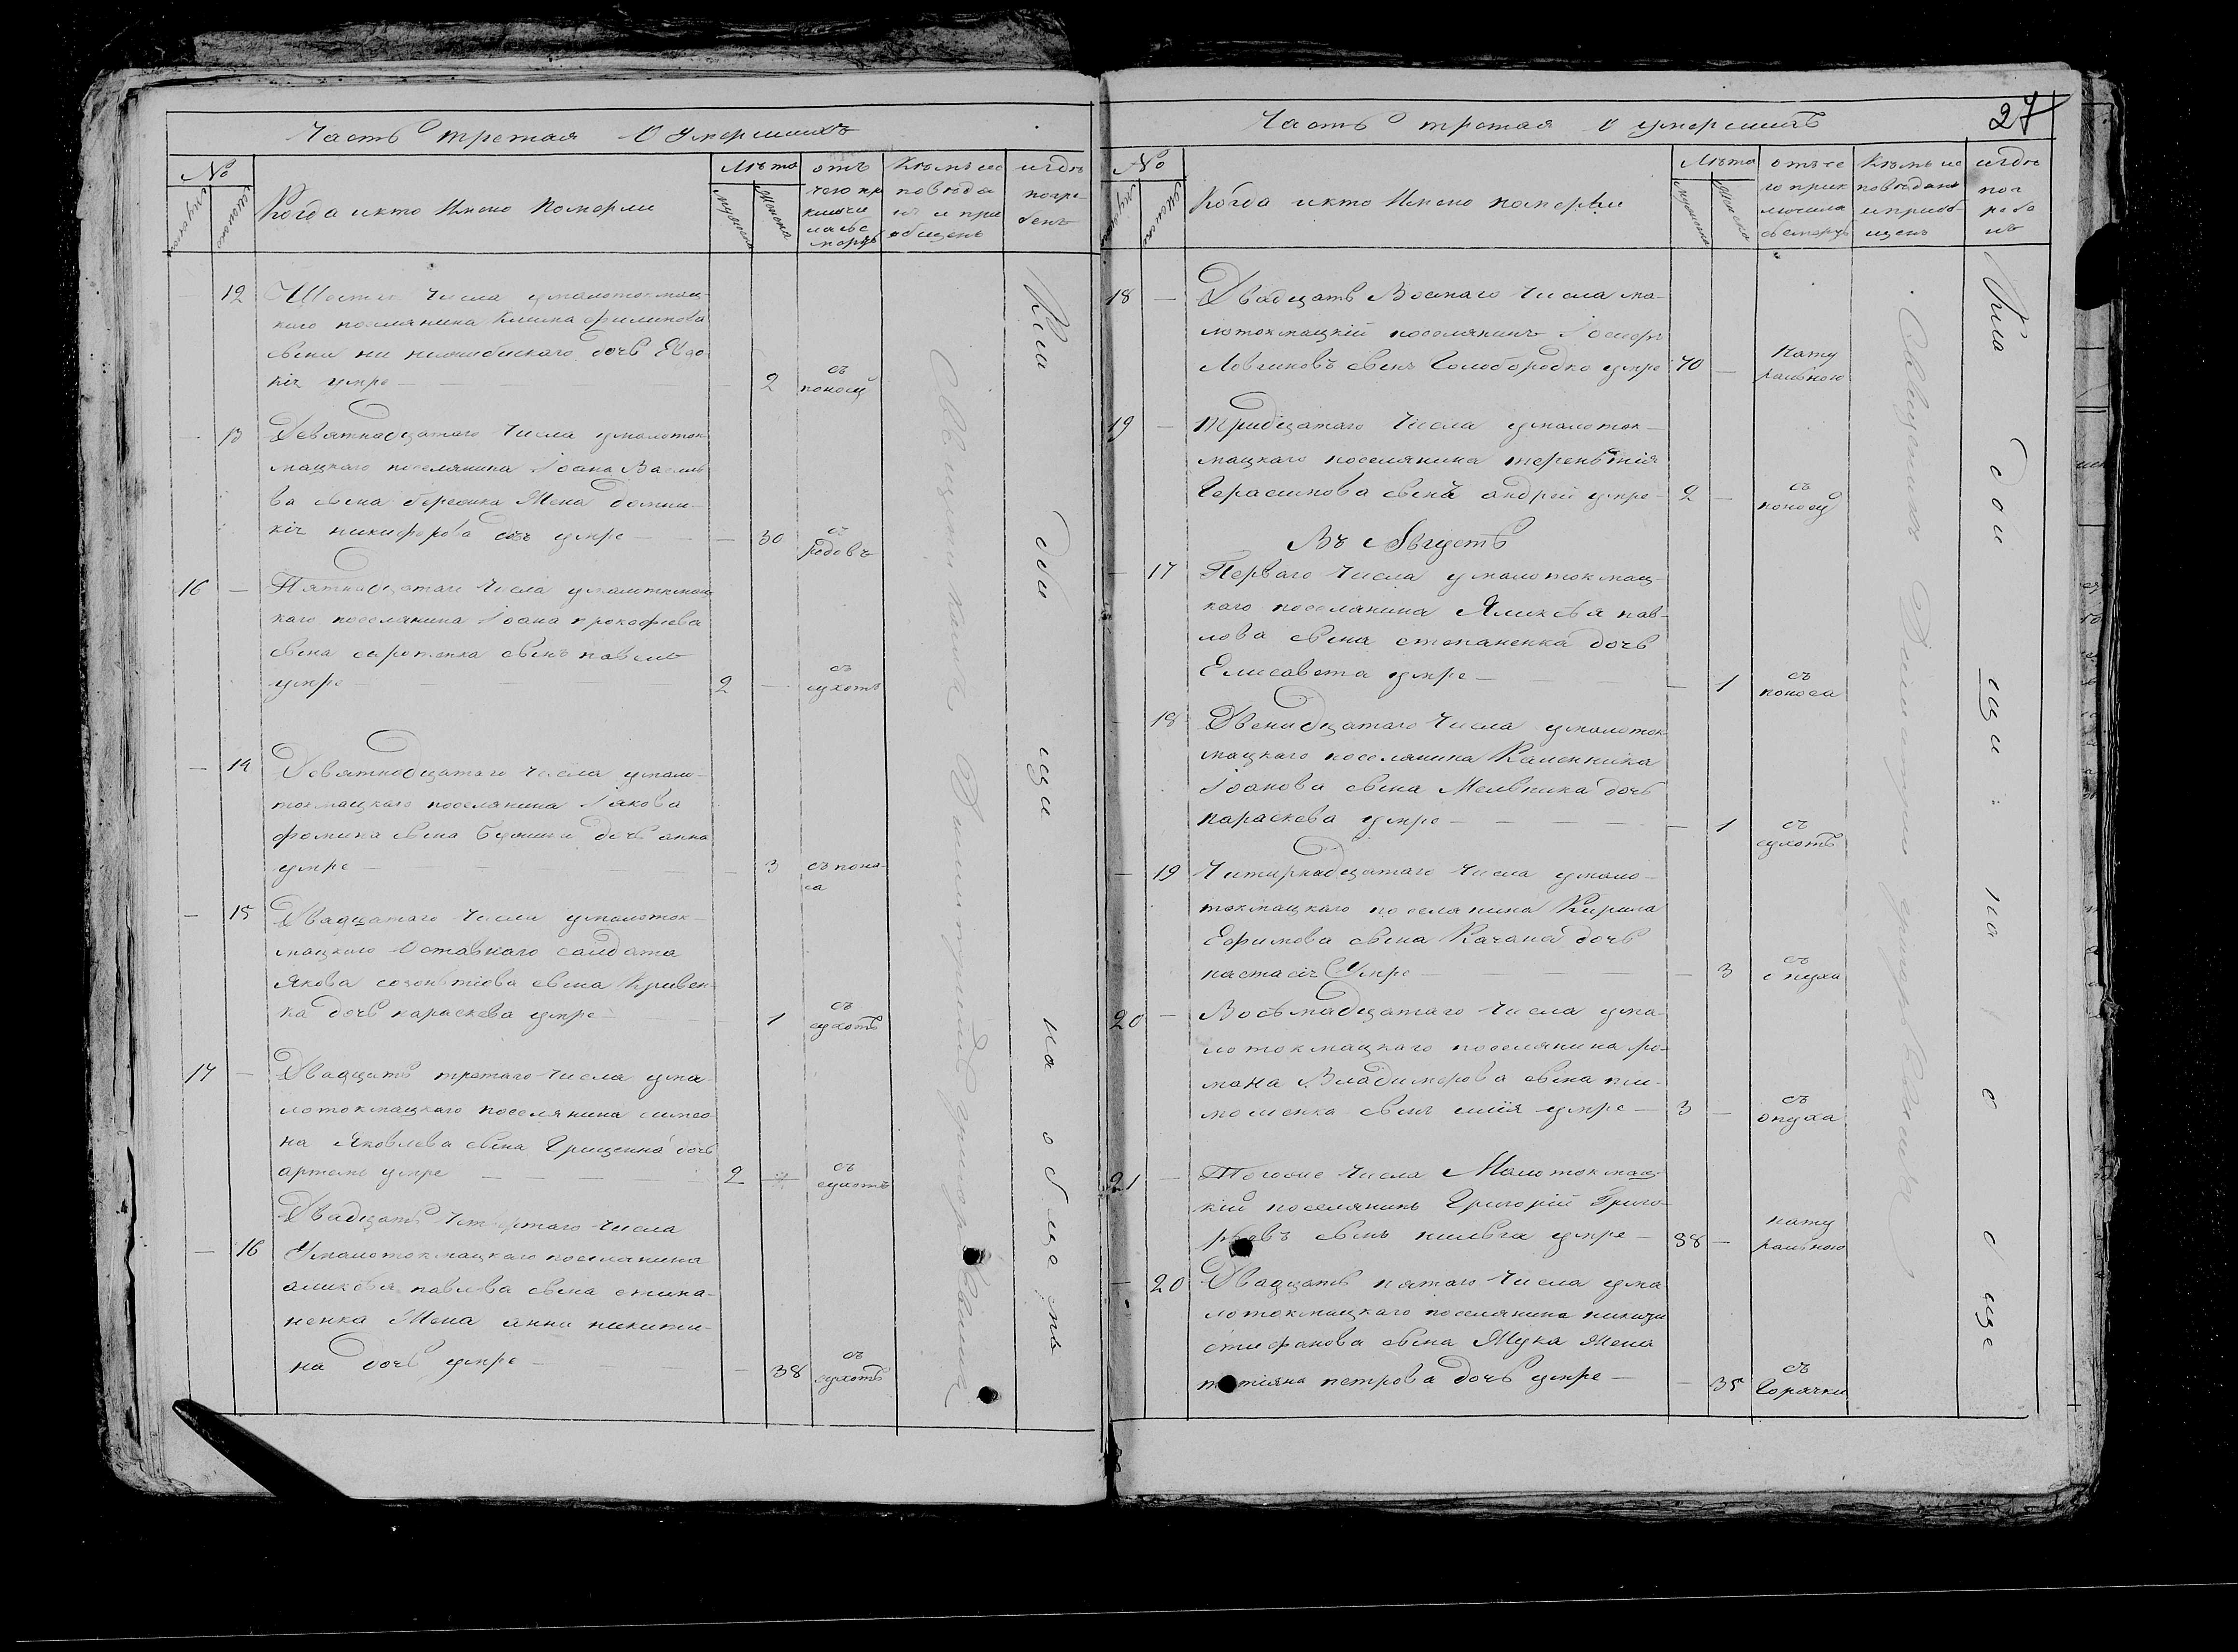 Часть третая О умершихъ
№
мужеска
женска
Когда и кто Имено Померли
Лѣта
мужеска
женска
отъ
чего пр
ключи
лась
мерть
Кѣмъ ис
повѣда
нъ и прі
общенъ
и гдѣ
погре
бенъ
12
Шестаго Числа умалотокмац
каго поселянина Климa филипова
сына дочь Евдо
кія умре
2
съ
поносу
13
Девятнадцатаго Числа умалоток
мацкаго поселянина Іоана Василь
ва сына Жена домни
кія никифорова дочь умре
30
съ
родовъ
16
Пятнадцатаго Числа умалотокмац
каго поселянина Іоана прокофіева
сына сиротенка сынъ павелъ
умре
2
съ
сухотъ
14
Девятнадцатаго Числа умало
токмацкаго поселянина Іякова
фомина сына дочь анна
умре
3
съ поно
са
15
Двадцатаго Числа умалоток
мацкаго Оставнаго салдата
Якова созонътіова сына Кривен
ка дочь параскева умре
1
съ
сухотъ
17
Двадцать третаго Числа ума
лотокмацкаго поселянина симео
на Яковлева сына Грищенка дочь
артемъ умре
2
съ
сухотъ
Двадцать Четвертаго Числа
16
Умалотокмацкаго поселянина
аликсѣя павлова сына стипа
ненка Жена анна никити
на дочь умре
38
съ
сухотъ
Священникъ Димитрій Григоровичъ
На кла дби щи на обще мъ
27
Часть третая О умершихъ
№
мужеска
женска
Когда и кто Имено померли
Лѣта
мужеска
женска
отъ че
го прик
лючила
сь смерть
Кѣмъ ис
повѣданъ
и приоб
щенъ
и гдѣ
пог
ребе
нъ
18
Двадцать Восмаго Числа ма
лотокмацкій поселянинъ Іосифъ
Логвиновъ сынъ Голобородко умре
70
Нату
ральною
19
тридцатаго Числа умалоток
мацкаго поселянина терентія
Герасимова сынъ андрей умре
2
съ
поносу
Въ Августѣ
17
Перваго Числа умалотокмац
каго поселянина Аликсѣя пав
лова сына степаненка дочь
Елисавета умре
1
съ
поноса
18
Двенадцатаго Числа умалоток
мацкаго поселянина Калиника
Іоанова сына Мелвника дочь
параскева умре
1
съ
сухотъ
19
Читырнадцатаго Числа умало
токмацкаго поселянина Кирила
Ефимова сына Качана дочь
настасія Умре
3
съ
опуха
20
Восьмнадцатаго Числа ума
лотокмацкаго поселянина ро
мана Владимерова сына тим
мошенка сынъ илія умре
3
съ
опуха
21
Тогоже Числа Малотокмац
кій поселянинъ Григорій Григо
рьевъ сынъ умре
38
нату
ральною
20
Двадцать пятаго Числа ума
лотокмацкаго поселянина
стифанова сына Жука Жена
татіяна петрова дочь умре
35
съ
Горячки
Священникъ Димитрій Григоровичъ
На кла дби щи на о б ще